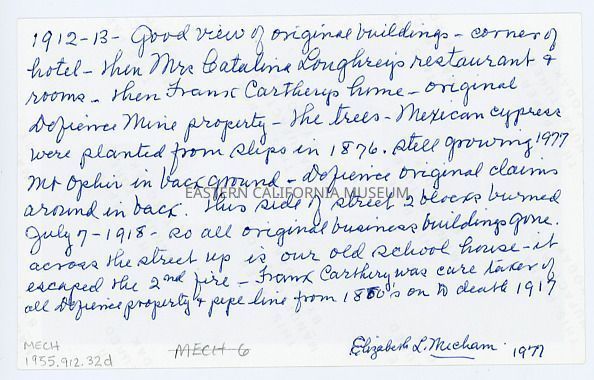 1912-13- Good view of original buildings - corner of
hotel - then Mrs Catalina Loughreys restaurant &
rooms - then Frank Carthery's home - original
Defience Mine property - the trees - Mexican cypress
were planted from slips in 1876. still growing 1977
Mt Ophir in back ground - Defience original claims
EASTERN CALIFORNIA MUSEUM
around in back. This side of street 2 blocks burned
July 7-1918- so all original business buildings gone.
across the street up is our old school house - it
escaped the 2nd fire - Frank Carthery was care taker of
all Defience property & pipe line from 1880's on to death 1917
MECH
1955.912.32d
MECH 6
Elizabeth L. Mecham 1977